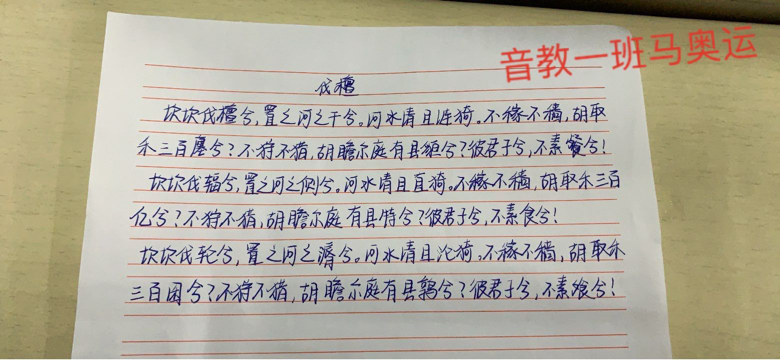 音教一班马奥运
伐檀
坎坎伐檀兮，置之河之干兮。河水清且涟猗。不稼不穑，胡取
禾三百廛兮？不狩不猎，胡瞻尔庭有县貆兮？彼君子兮，不素餐兮！
坎坎伐辐兮，置之河之侧兮。河水清且直猗。不稼不穑，胡取禾三百
亿兮？不狩不猎，胡瞻尔庭有县特兮？彼君子兮，不素食兮！
坎坎伐轮兮，置之河之漘兮。河水清且沦猗。不稼不穑，胡取禾
三百囷兮？不狩不猎，胡瞻尔庭有县鹑兮？彼君子兮，不素飧兮！